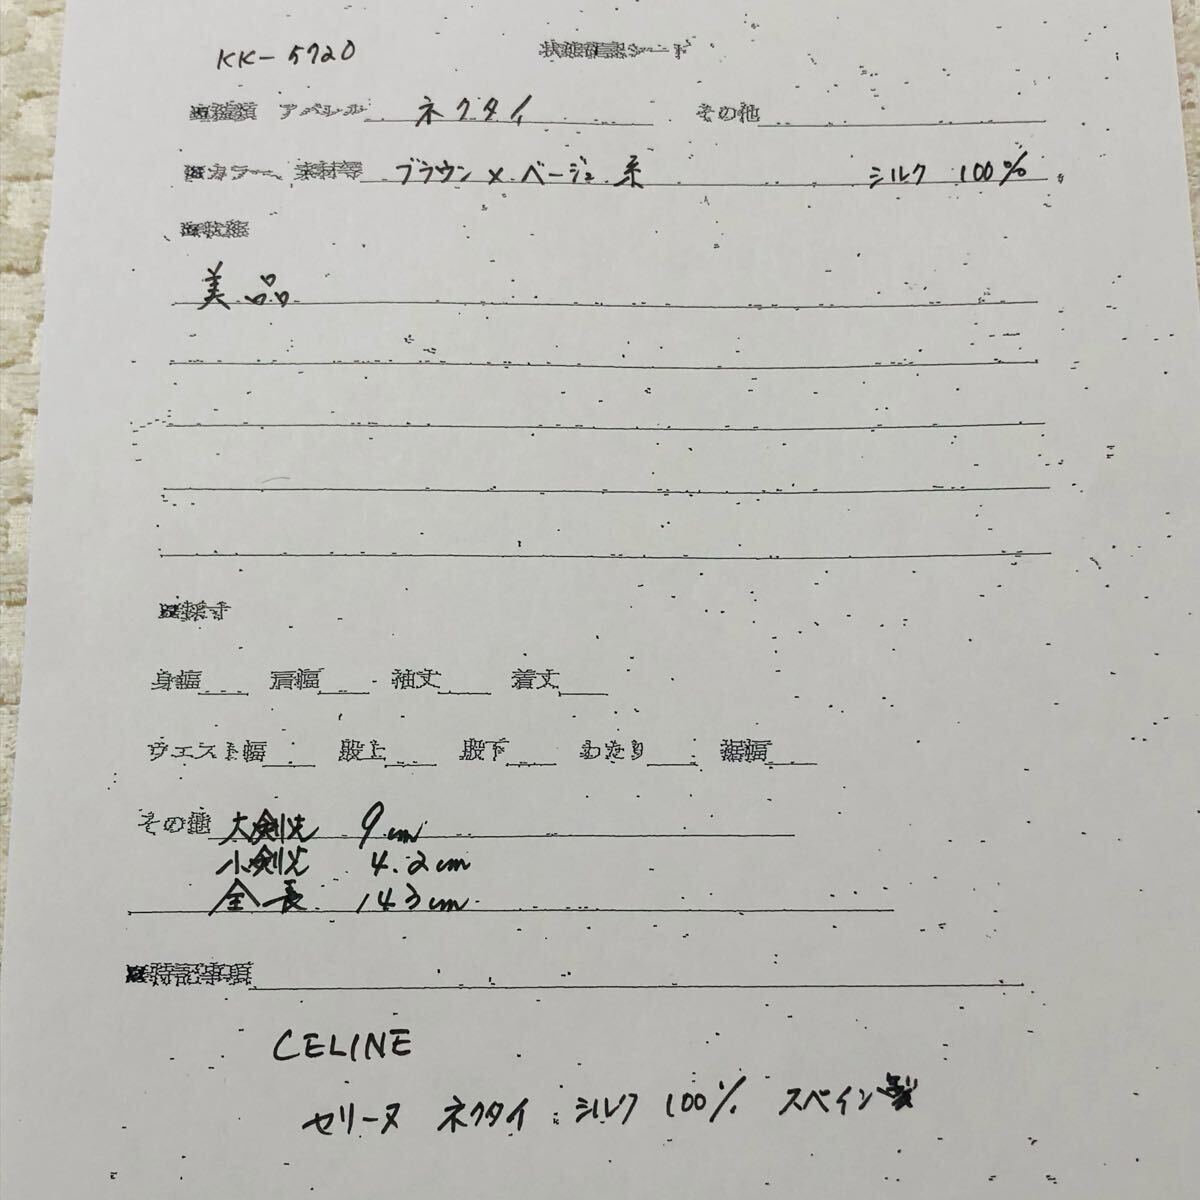 KK-5720 状態確認シート
■種類 アパレル ネクタイ その他
■カラー、素材等 ブラウン×ベージュ系 シルク 100%
■状態
美品
■採寸
身幅 肩幅 袖丈 着丈
ウエスト幅 股上 股下 わたり 裾幅
その他 大剣先 9cm
小剣先 4.2cm
全長 143cm
■特記事項
CELINE
セリーヌ ネクタイ シルク 100% スペイン製